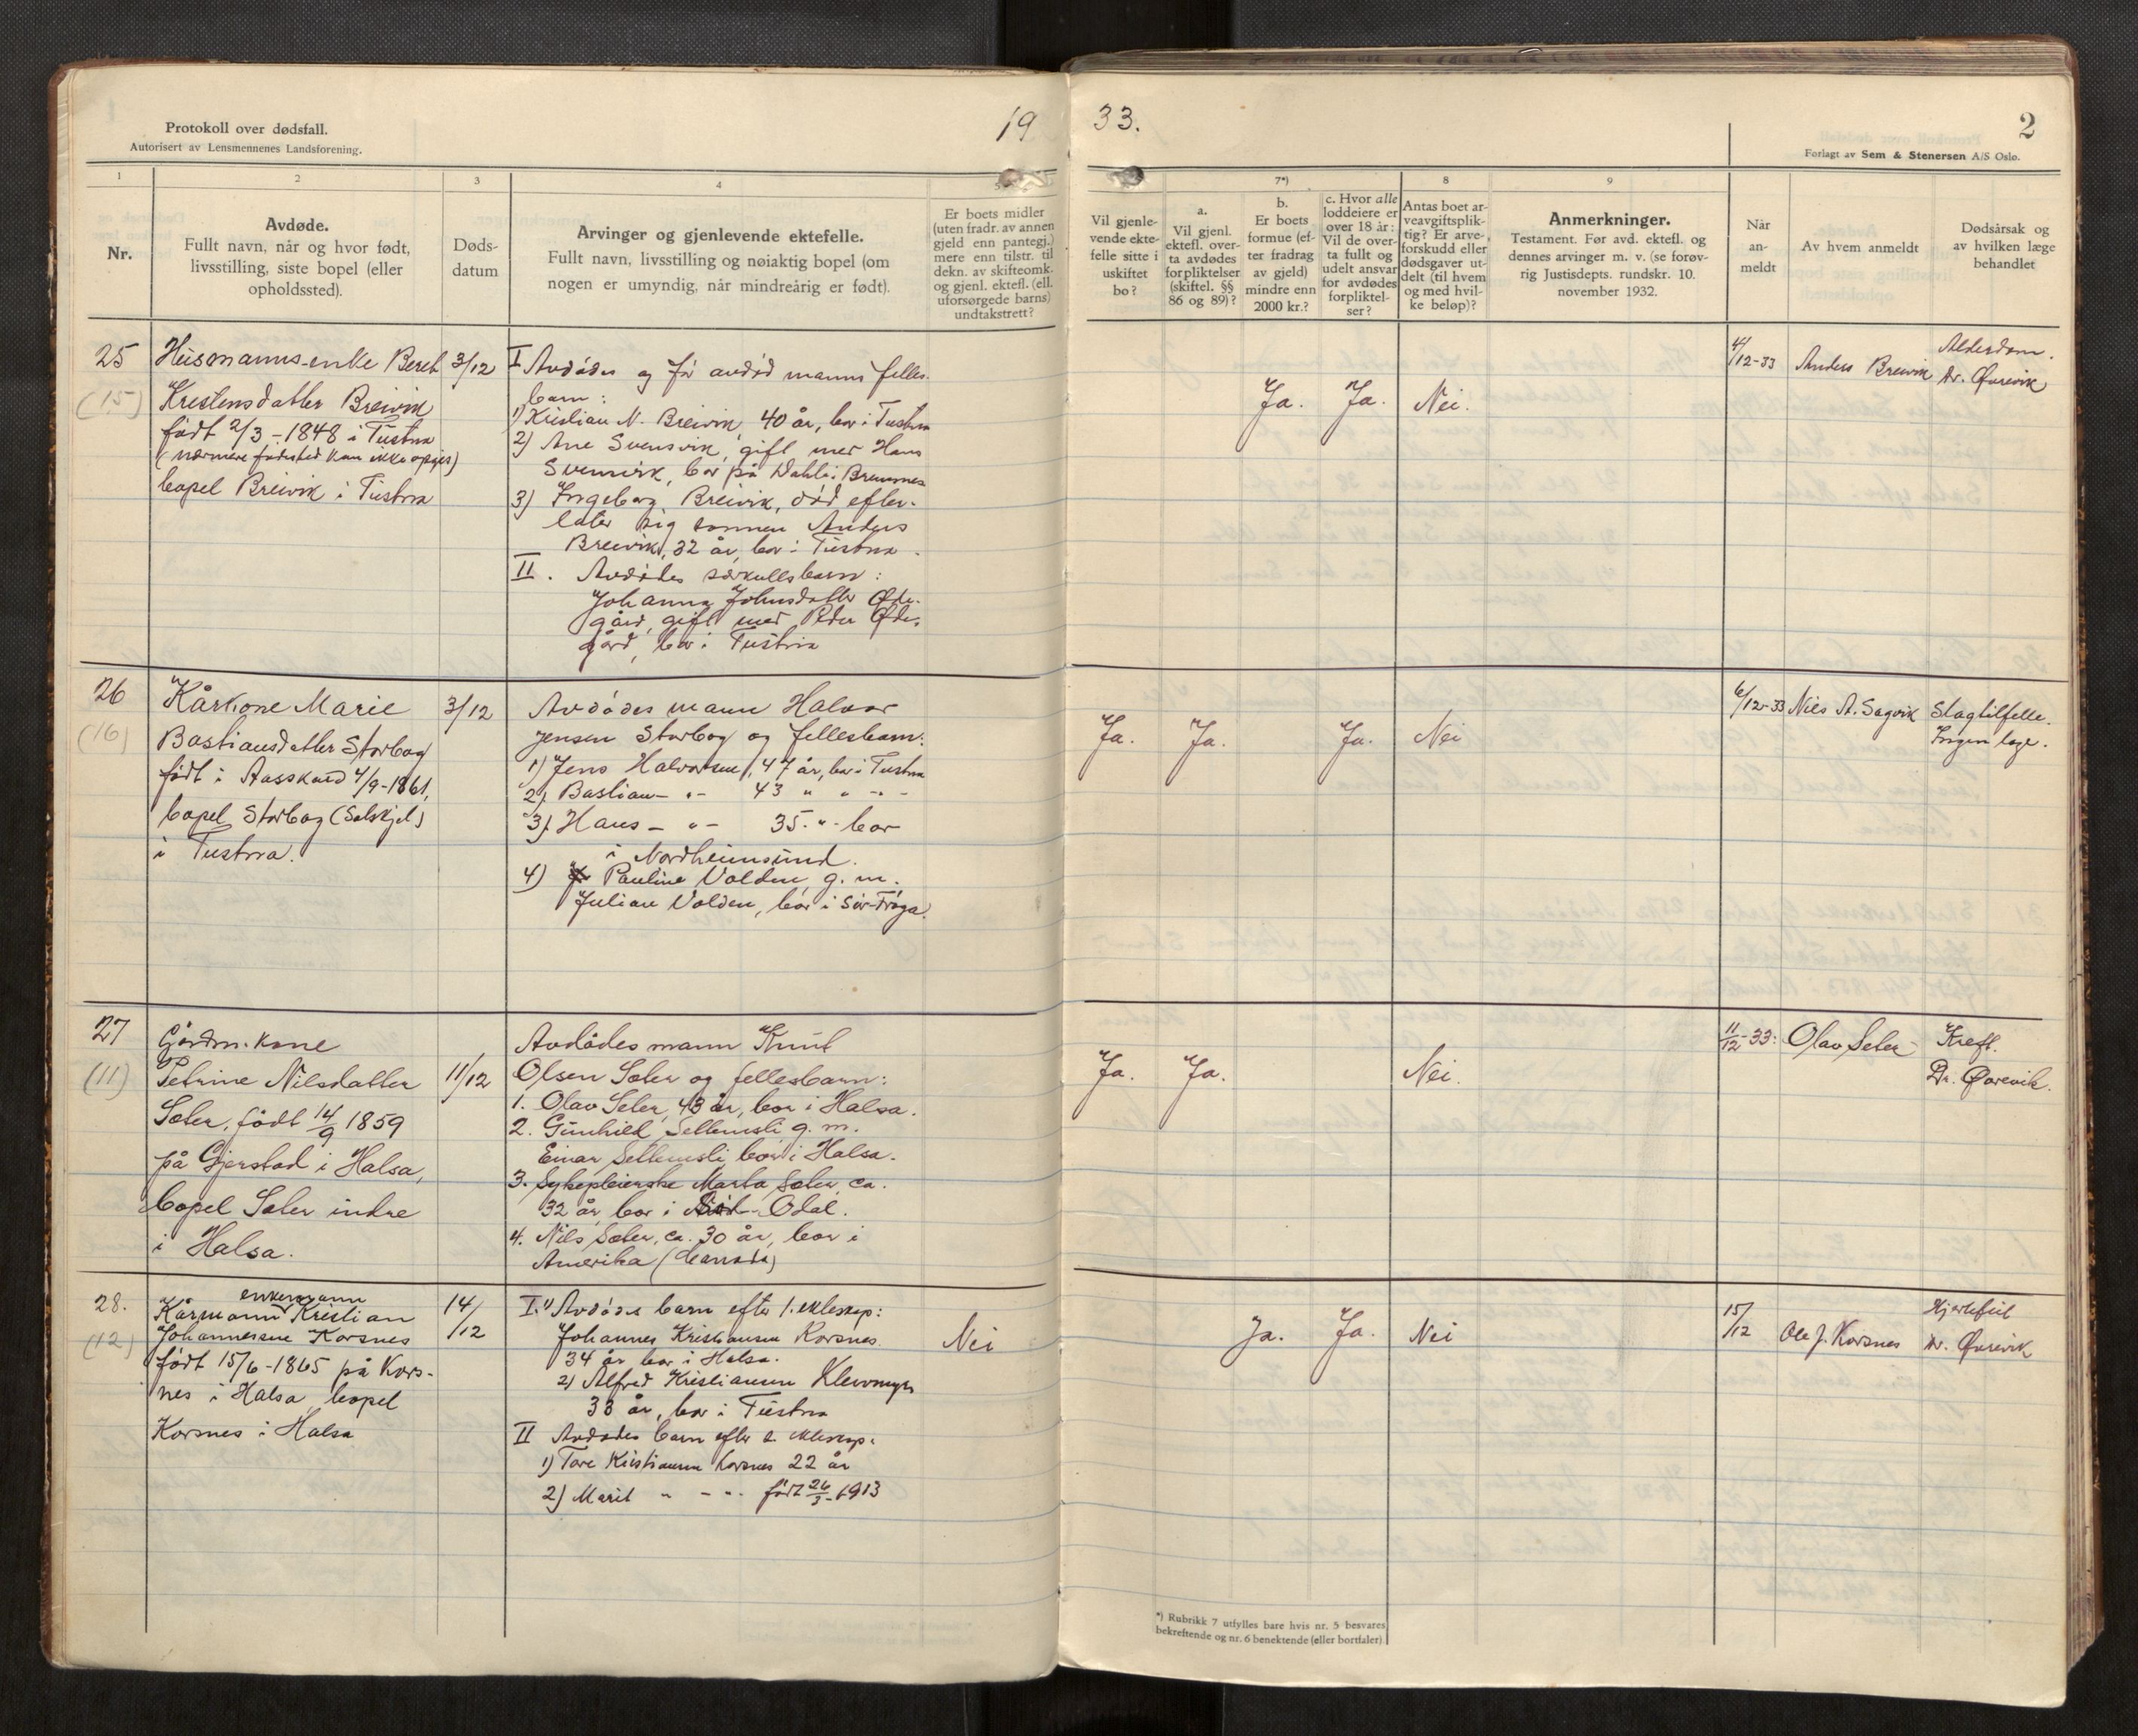 Protokoll over dødsfall.
Autorisert av Lensmennenes Landsforening.
19
33.
2
Forlagt av Sem & Stenersen A/S Oslo.
1
2
3
4
5
7*)
8
9
Nr.
Avdøde.
Fullt navn, når og hvor født,
livsstilling, siste bopel (eller
opholdssted).
Døds-
datum
Arvinger og gjenlevende ektefelle.
Fullt navn, livsstilling og nøiaktig bopel (om
nogen er umyndig, når mindreårig er født).
Er boets midler
(uten fradr. av annen
gjeld enn pantegj.)
mere enn tilstr. til
dekn. av skifteomk.
og gjenl. ektefl. (ell.
uforsørgede barns)
undtakstrett?
Vil gjenle-
vende ekte-
felle sitte i
uskiftet
bo?
a.
Vil gjenl.
ektefl. over-
ta avdødes
forpliktelser
(skiftel. §§
86 og 89)?
b.
Er boets
formue (ef-
ter fradrag
av gjeld)
mindre enn
2000 kr.?
c. Hvor alle
loddeiere er
over 18 år:
Vil de over-
ta fullt og
udelt ansvar
for avdødes
forpliktel-
ser?
Antas boet ar-
veavgiftsplik-
tig? Er arve-
forskudd eller
dødsgaver ut-
delt (til hvem
og med hvil-
ke beløp)?
Anmerkninger.
Testament. Før avd. ektefl. og
dennes arvinger m. v. (se forøv-
rig Justisdepts. rundskr. 10.
november 1932.
Når
an-
meldt
Av hvem anmeldt
Dødsårsak og
av hvilken læge
behandlet
25
(15)
Husmanns-enke Beret
Krestensdatter Breivik
født 2/3-1848 i Tustna
(nærmere fødested kan ikke opgis)
bopel Breivik i Tustna
3/12
I Avdødes og før avdød manns felles-
barn:
1) Kristian N. Breivik, 40 år, bor i Tustna
2) Ane Svensvik, gift med Hans
Svensvik, bor på Dahl i Bremnes
3) Ingeborg Breivik, død efter-
later sig sønnen Anders
Breivik, 32 år, bor i Tustna.
II. Avdødes særkullsbarn:
Johanna Johnsdatter Øde-
gård, gift med Peder Øde-
gård, bor i Tustna
Ja.
Ja.
Nei.
4/12-33
Anders Breivik
Alderdom.
Dr. Øvrevik
26
(16)
Kårkone Marie
Bastiansdatter Storbog
født i Aasskard 4/9-1861,
bopel Storbog (Solskjel)
i Tustna.
3/12
Avdødes mann Halvor
Jensen Storbog og fellesbarn:
1) Jens Halvorsen, 47 år, bor i Tustna
2) Bastian - " - 43 " " - " -
3) Hans - " - 35 - " - bor
i Nordheimsund.
4) Pauline Volden, g. m.
Julian Volden, bor i Sør-Frøya.
Ja.
Ja.
Ja.
Nei
6/12-33
Nils A. Sagvik
Slagtilfelle.
Ingen læge.
27
(11)
Gårdm. kone
Petrine Nilsdatter
Sæter, født 14/9 1859
på Gjerstad i Halsa,
bopel Sæter indre
i Halsa.
11/12
Avdødes mann Knut
Olsen Sæter og fellesbarn:
1. Olav Sæter, 43 år, bor i Halsa.
2. Gunhild Settemsli g. m.
Einar Settemsli bor i Halsa.
3. Sykepleierske Marta Sæter, ca.
32 år, bor i Odal.
4. Nils Sæter, ca. 30 år, bor i
Amerika (Canada)
Ja.
Ja.
Nei.
11/12-33:
Olav Sæter
Kreft.
Dr. Øvrevik.
28.
(12)
enkemann
Kårmann Kristian
Johannessen Korsnes
født 15/6-1865 på Kors-
nes i Halsa, bopel
Korsnes i Halsa
14/12
I. 1) Avdødes barn efter 1. ekteskap:
Johannes Kristiansen Korsnes
34 år, bor i Halsa.
2) Alfred Kristiansen Klevmyr
33 år, bor i Tustna
II Avdødes barn efter 2. ekteskap:
1) Tore Kristiansen Korsnes 22 år
2) Marit " - " - født 26/3-1913
Nei
Ja.
Ja.
Nei
15/12
Ole J. Korsnes
Hjertefeil
Dr. Øvrevik
*) Rubrikk 7 utfylles bare hvis nr. 5 besvares
bekreftende og nr. 6 benektende (eller bortfaler).